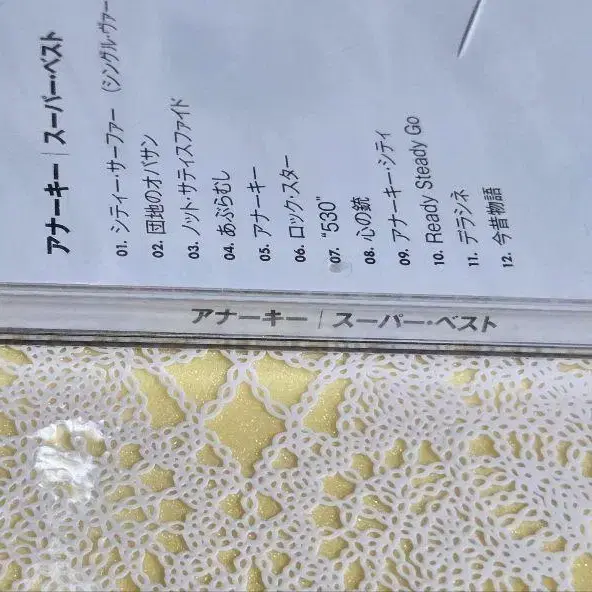 アナーキー｜スーパー・ベスト
01. シティー・サーファー （シングル・ヴァー
02. 団地のオバサン
03. ノット・サティスファイド
04. あぶらむし
05. アナーキー
06. ロック・スター
07. "530"
08. 心の銃
09. アナーキー・シティ
10. Ready Steady Go
11. デラシネ
12. 今昔物語
アナーキー｜スーパー・ベスト